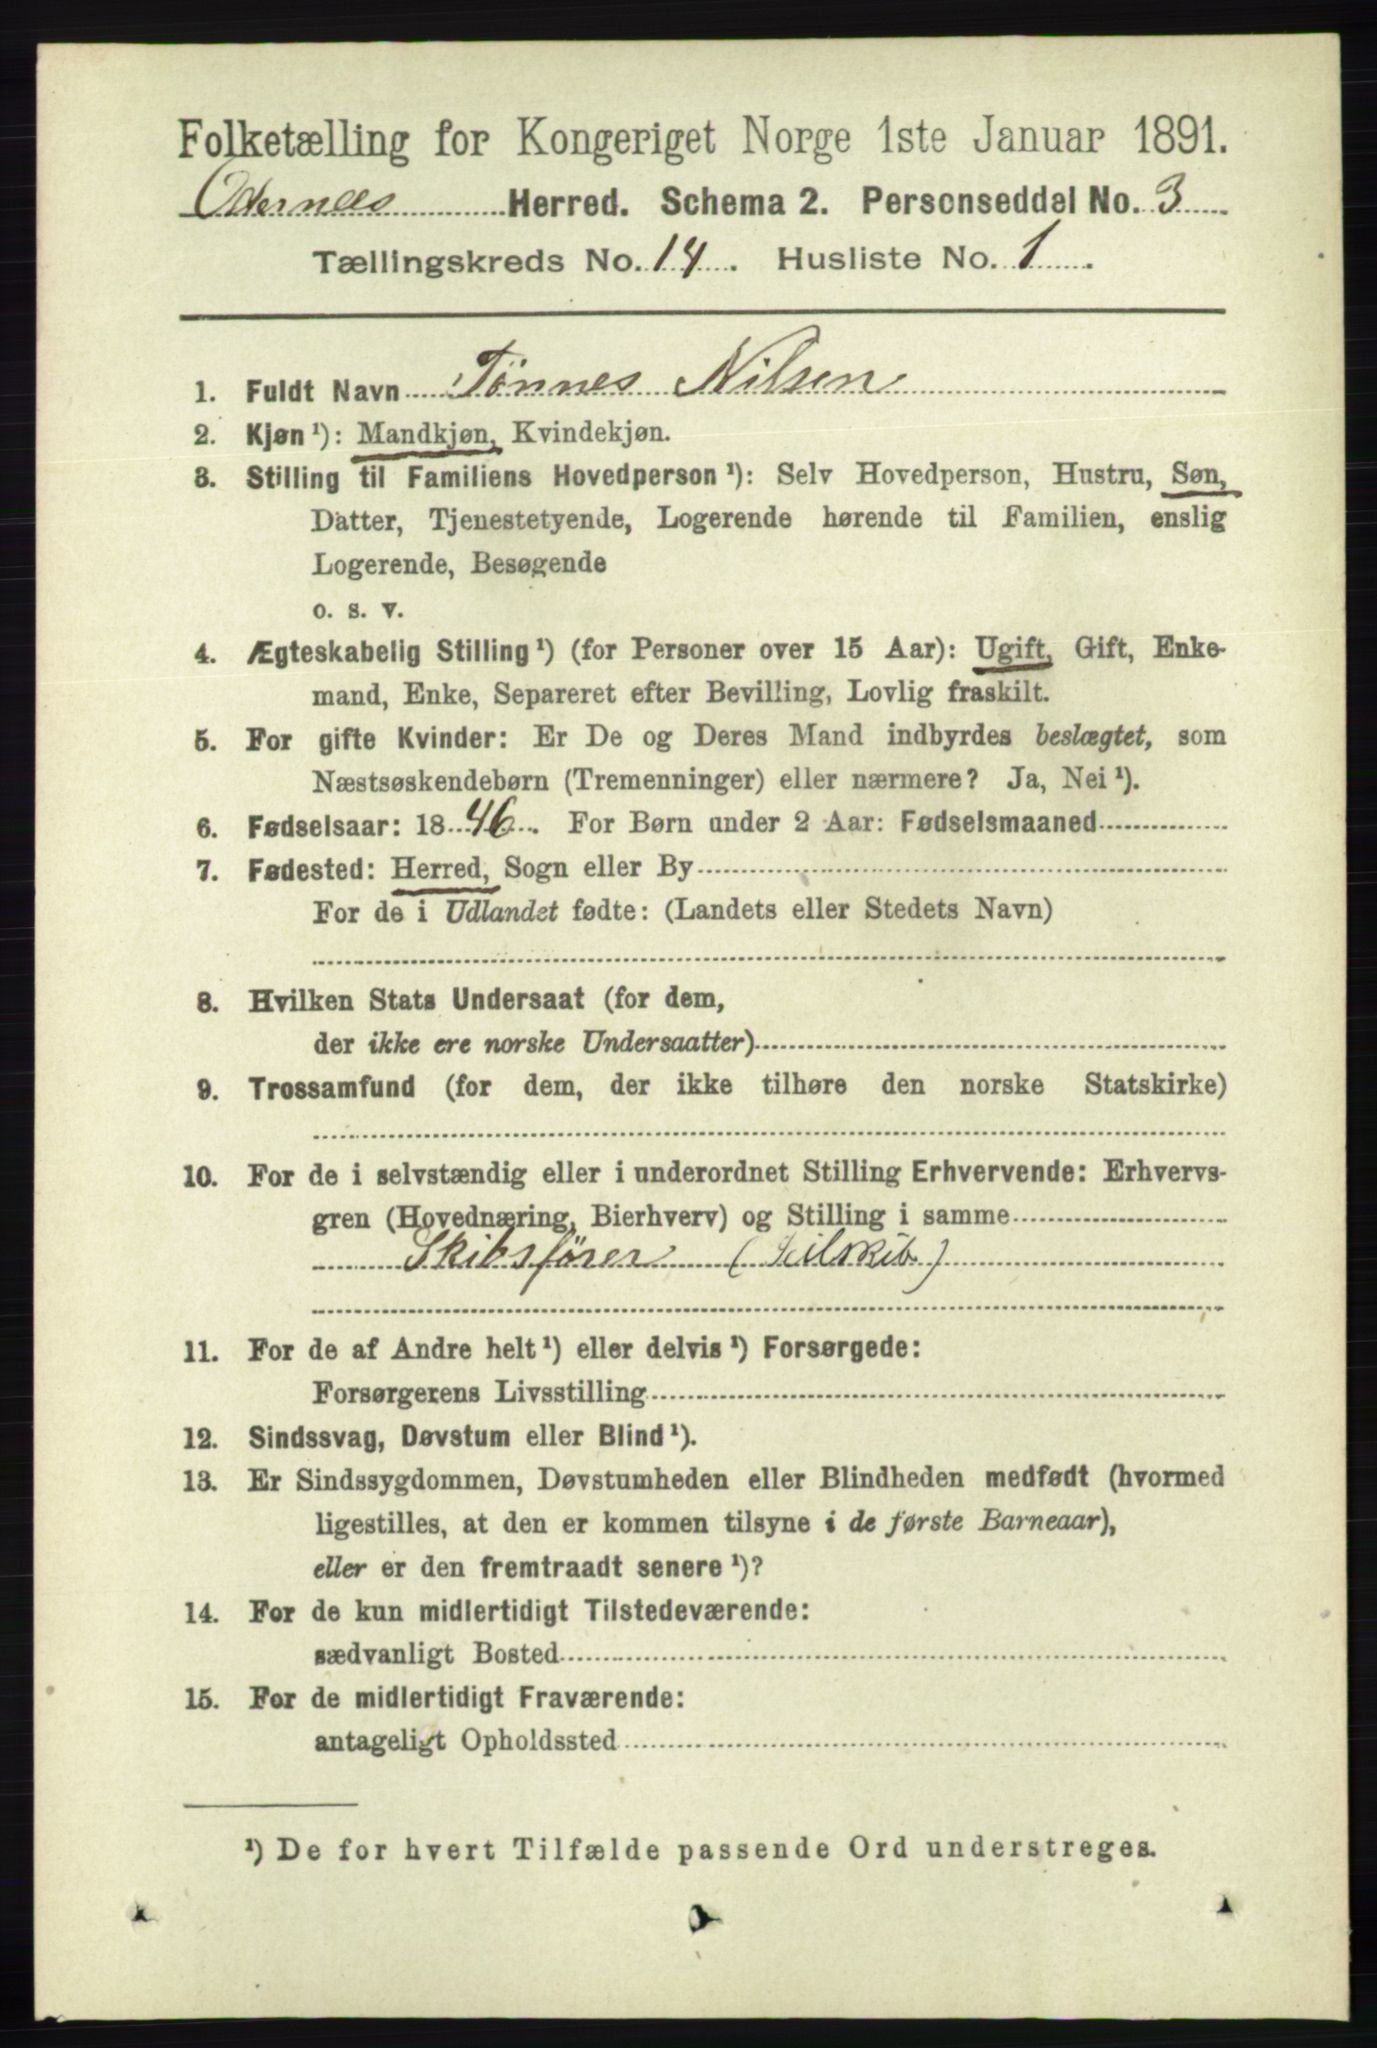 Folketælling for Kongeriget Norge 1ste Januar 1891.
Odernæs Herred. Schema 2. Personseddel No. 3
Tællingskreds No. 14. Husliste No. 1
1. Fuldt Navn Tønnes Nilsen
2. Kjøn ¹): Mandkjøn, Kvindekjøn.
3. Stilling til Familiens Hovedperson ¹): Selv Hovedperson, Hustru, Søn,
Datter, Tjenestetyende, Logerende hørende til Familien, enslig
Logerende, Besøgende
o. s. v.
4. Ægteskabelig Stilling ¹) (for Personer over 15 Aar): Ugift, Gift, Enke-
mand, Enke, Separeret efter Bevilling, Lovlig fraskilt.
5. For gifte Kvinder: Er De og Deres Mand indbyrdes beslægtet, som
Næstsøskendebørn (Tremenninger) eller nærmere? Ja, Nei ¹).
6. Fødselsaar: 1846. For Børn under 2 Aar: Fødselsmaaned
7. Fødested: Herred, Sogn eller By
For de i Udlandet fødte: (Landets eller Stedets Navn)
8. Hvilken Stats Undersaat (for dem,
der ikke ere norske Undersaatter)
9. Trossamfund (for dem, der ikke tilhøre den norske Statskirke)
10. For de i selvstændig eller i underordnet Stilling Erhvervende: Erhvervs-
gren (Hovednæring, Bierhverv) og Stilling i samme
Skibsfører (Seilskib)
11. For de af Andre helt ¹) eller delvis ¹) Forsørgede:
Forsørgerens Livsstilling
12. Sindssvag, Døvstum eller Blind ¹).
13. Er Sindssygdommen, Døvstumheden eller Blindheden medfødt (hvormed
ligestilles, at den er kommen tilsyne i de første Barneaar),
eller er den fremtraadt senere ¹)?
14. For de kun midlertidigt Tilstedeværende:
sædvanligt Bosted
15. For de midlertidigt Fraværende:
antageligt Opholdssted
¹) De for hvert Tilfælde passende Ord understreges.